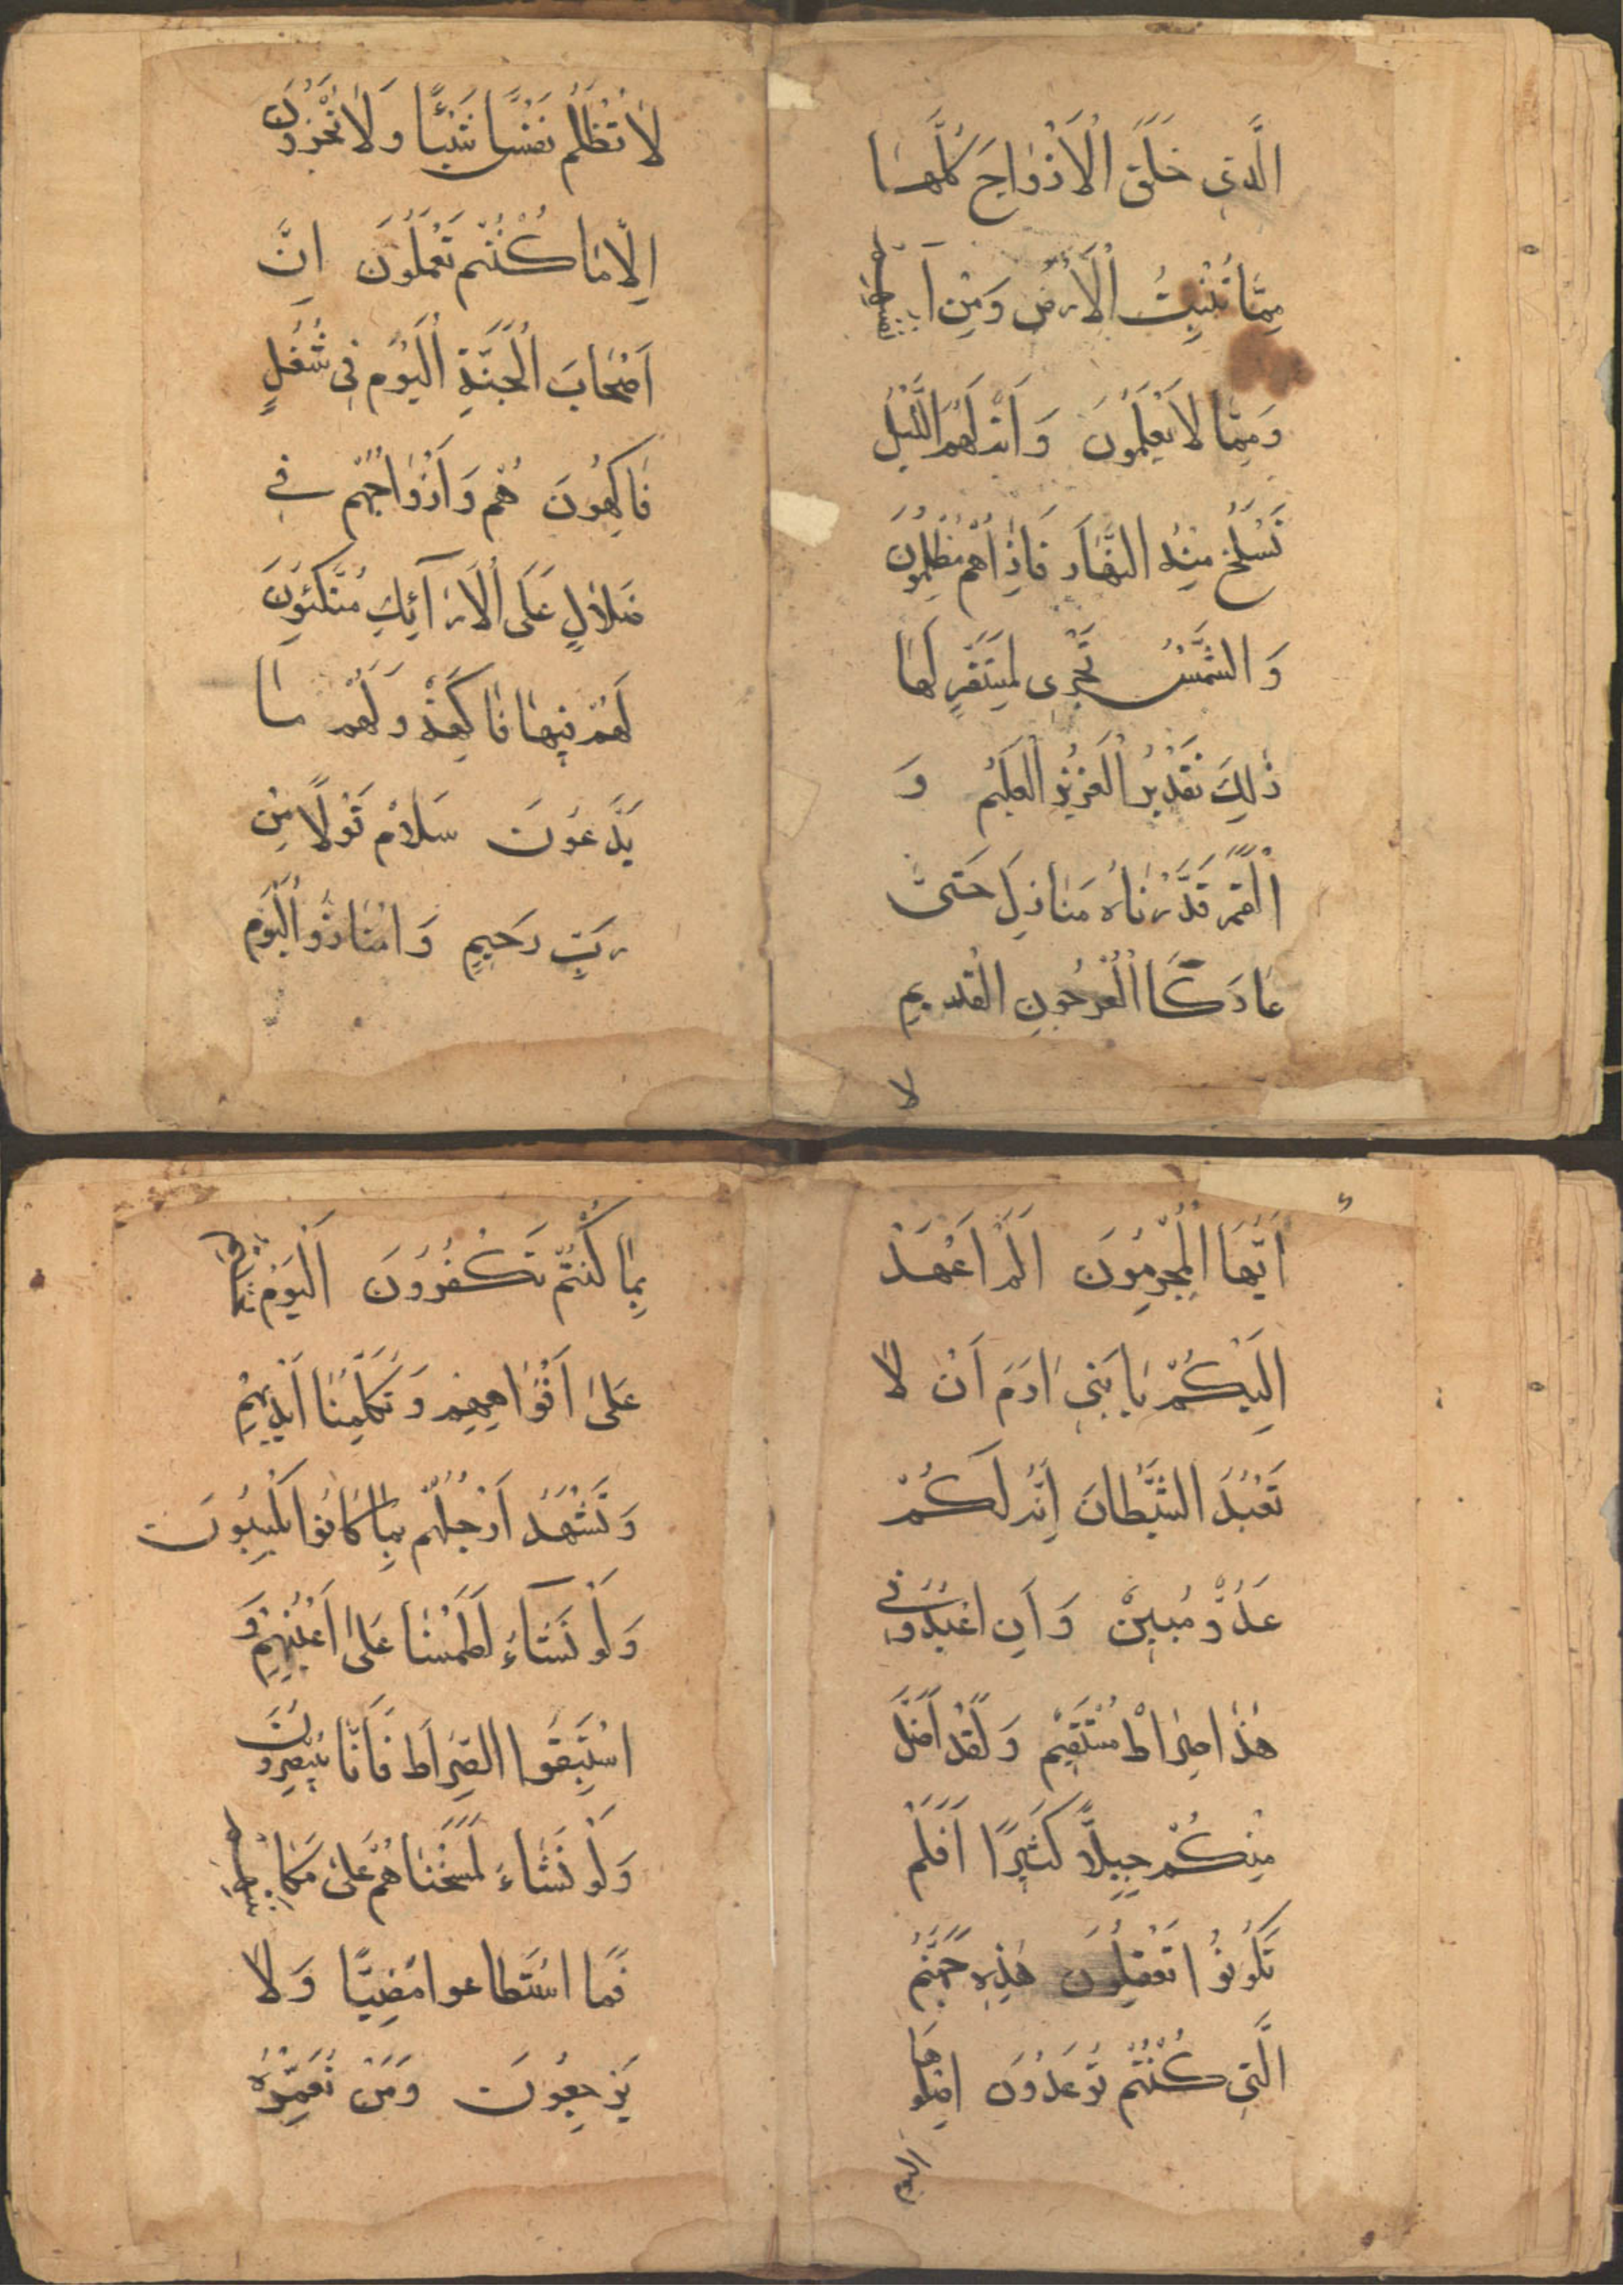 الَّذى خَلَقَ الْاَزْوٰاجَ كُلَّهٰا
مِمّٰا تُنْبِتُ الْاَرْضُ وَمِنْ اَنْفُسِهِمْ
وَمِمّٰا لاٰ يَعْلَمُونَ وَ اٰيَةٌ لَهُمُ اللَّيْلُ
نَسْلَخُ مِنْهُ النَّهٰارَ فَاِذٰاهُمْ مُظْلِمُونَ
وَ الشَّمْسُ تَجْرى لِمُسْتَقَرٍّ لَهٰا
ذٰلِكَ تَقْدِيرُ الْعَزِيزِ الْعَلِيمِ وَ
الْقَمَرَ قَدَّرْنٰاهُ مَنٰازِلَ حَتىّٰ
عٰادَ كَاالْعُرْجُونِ الْقَدِيمِ
لا
لاٰ تُظْلَمُ نَفْسٌ شَيْئًا وَلاٰ تُجْزَوْنَ
اِلّاٰ مٰا كُنْتُمْ تَعْمَلُونَ اِنَّ
اَصْحٰابَ الْجَنَّةِ الْيَوْمَ فِى شُغُلٍ
فٰاكِهُونَ هُمْ وَاَزْوٰاجُهُمْ فِى
ضَلاٰلٍ عَلَى الْاَرَآئِكِ مُتَّكِئُونَ
لَهُمْ فِيهٰا فٰاكِهَةٌ وَلَهُمْ مٰا
يَدَّعُونَ سَلاٰمٌ قَوْلًا مِنْ
رَبٍّ رَحِيمٍ وَامْتٰازُو الْيَوْمَ
اَيُّهَا الْمُجْرِمُونَ اَلَمْ اَعْهَدْ
اِلَيْكُمْ يٰابَنِى اٰدَمَ اَنْ لاٰ
تَعْبُدَ الشَّيْطٰانَ اِنَّهُ لَكُمْ
عَدُوٌّ مُبِينٌ وَاَنِ اعْبُدُونِى
هٰذٰا صِرٰاطٌ مُسْتَقِيمٌ وَلَقَدْ اَضَلَّ
مِنْكُمْ جِبِلّاً كَثِيرًا اَفَلَمْ
تَكُونُوا تَعْقِلُونَ هٰذِهِ جَهَنَّمُ
الَّتِى كُنْتُمْ تُوعَدُونَ اصْلَوْهٰا
اليوم
بِمٰا كُنْتُمْ تَكْفُرُونَ اَلْيَوْمَ نَخْتِمُ
عَلىٰ اَفْوٰاهِهِمْ وَتُكَلِّمُنٰا اَيْدِيهِمْ
وَتَشْهَدُ اَرْجُلُهُمْ بِمٰا كٰانُوا يَكْسِبُونَ
وَلَوْ نَشَآءُ لَطَمَسْنٰا عَلىٰ اَعْيُنِهِمْ وَ
اسْتَبَقُوا الصِّرٰاطَ فَاَنّٰا يُبْصِرُونَ
وَلَوْ نَشٰاءُ لَمَسَخْنٰاهُمْ عَلىٰ مَكٰانَتِهِمْ
فَمٰا اسْتَطٰاعوا مُضِيًّا وَلاٰ
يَرْجِعُونَ وَمَنْ نُعَمِّرْهُ